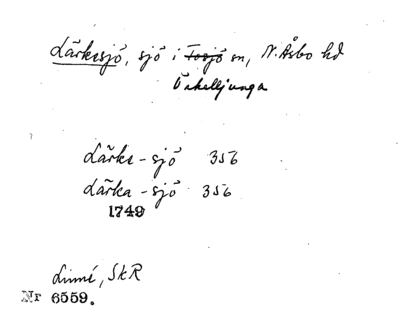 Lärkesjö, sjö i Tosjö sn, N. Åsbo hd
Örkelljunga
Lärke-sjö 356
Lärka-sjö 356
1749
Linné, SkR
Nr 6559.